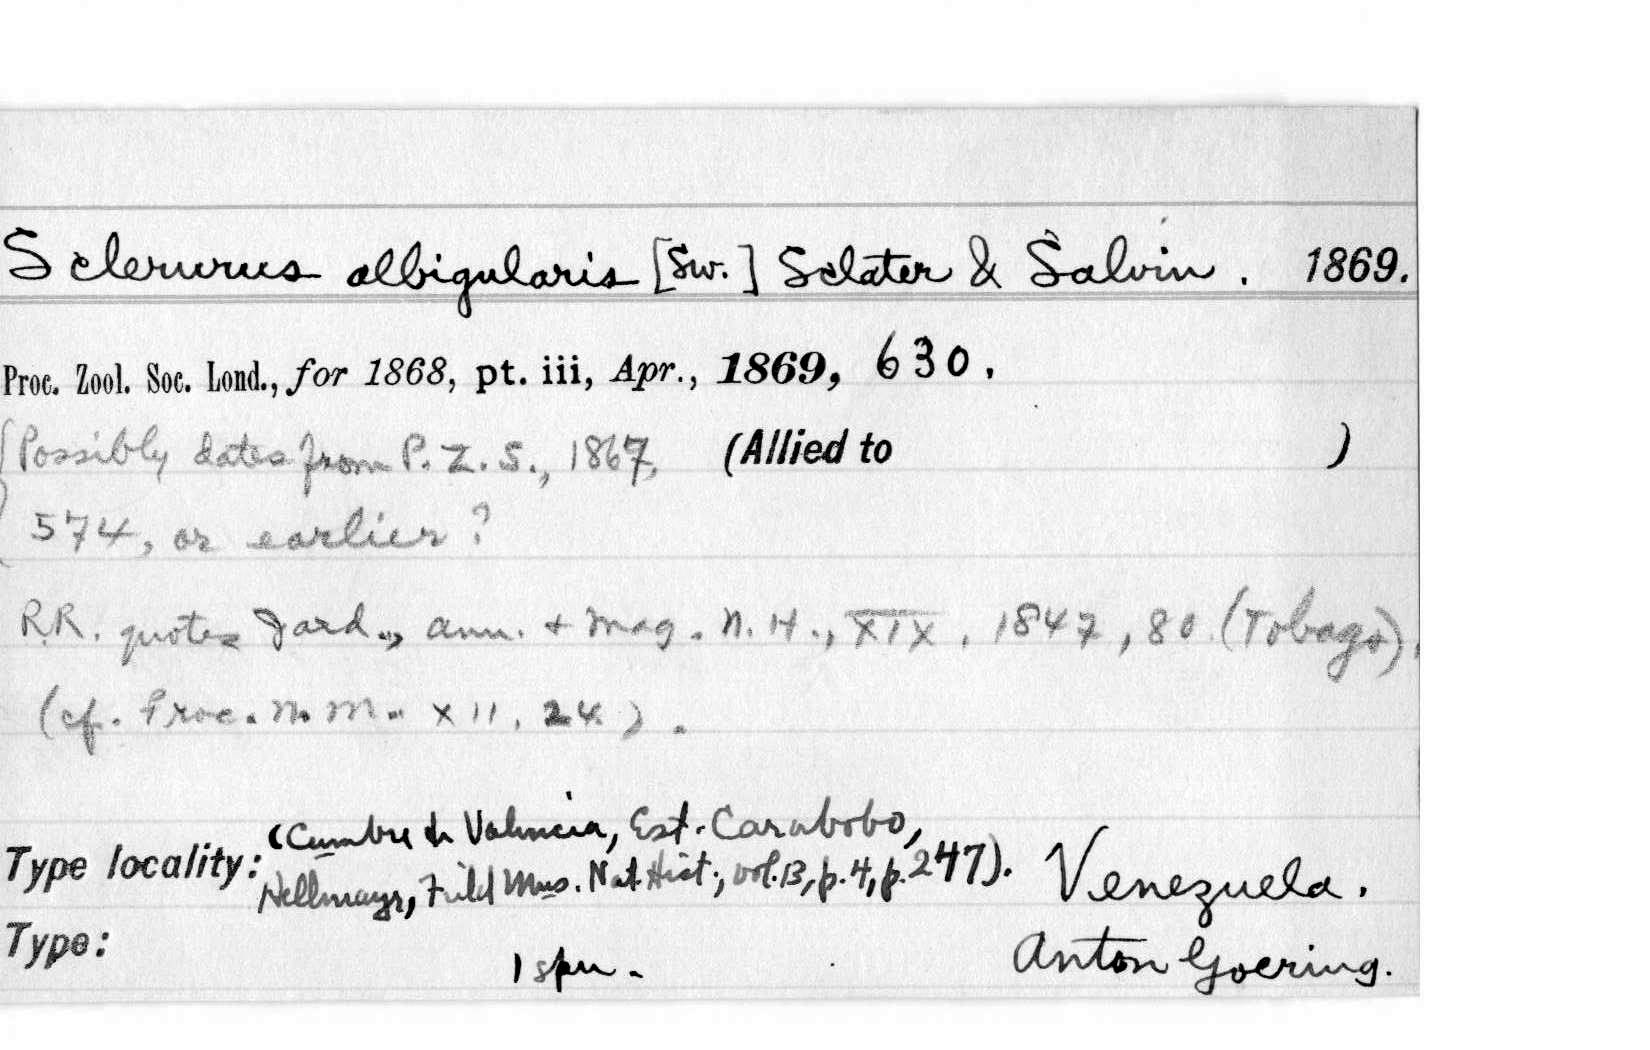 Sclerurus albigularis [Sw.] Sclater & Salvin. 1869.
Proc. Zool. Soc. Lond., for 1868, pt. iii, Apr., 1869, 630.
(Possibly dates from P.Z.S., 1867, (Allied to )
574, or earlier?
R.R. quotes Jard., Ann. + Mag. N.H., XIX, 1847, 80 (Tobago),
(cf. Proc. N.M. XII, 24).
(Cumbre de Valencia, Est. Carabobo,
Type locality: Hellmayr, Field Mus. Nat. Hist., vol. 13, p. 4, p. 247). Venezuela.
Type: 1 spm. Anton Goering.